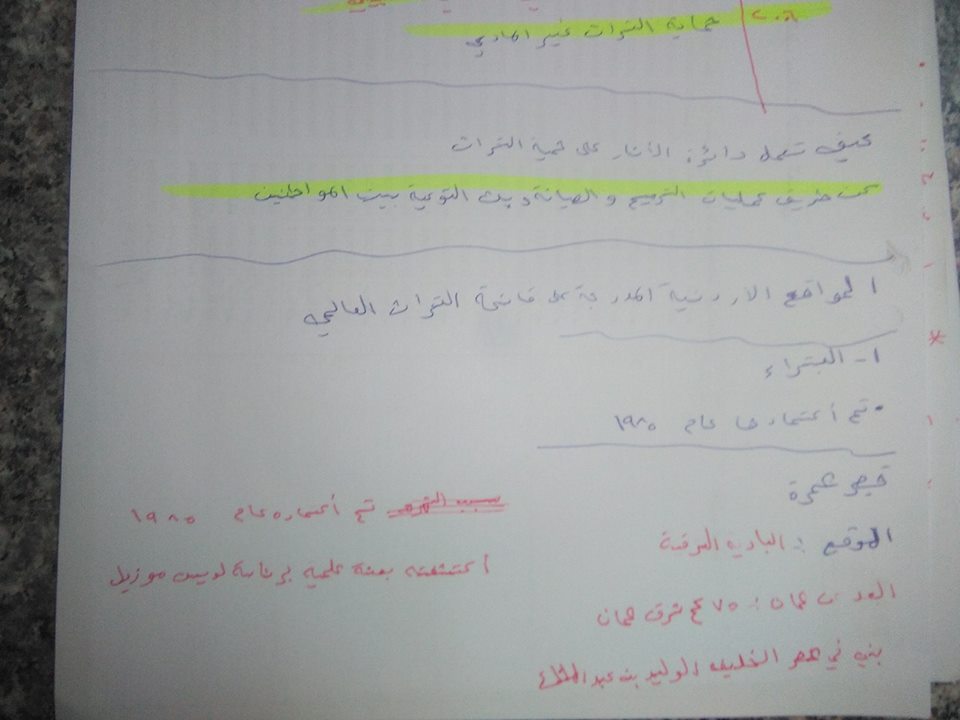 ٢٠٠٣
حماية التراث غير المادي
كيف تعمل دائرة الأثار على حمية التراث
عن طريق عمليات الترميم و الصيانة و بث التوعية بين المواطنين
المواقع الأردنية المدرجة على قائمة التراث العالمي
١- البتراء
• تم أعتمادها عام ١٩٨٥
قصير عمرة
الموقع : البادية الشرقية
تم أعتماده عام ١٩٨٥
البعد عن عمان : ٧٥ كم شرق عمان
أكتشفته بعثة علمية برئاسة لويس موزيل
بني في عهر الخليفة الوليد بن عبد الملك